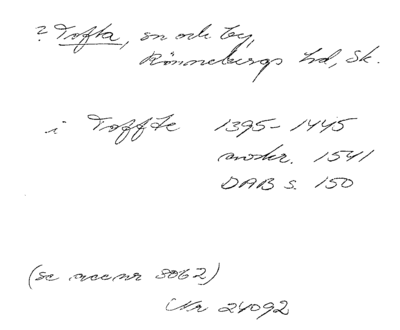 ? Tofta, sn och by,
Rönnebergs hd, Sk.
i Toffte 1395-1445
avskr. 1541
DAB s. 150
(se acc nr 8062)
Nr 24092